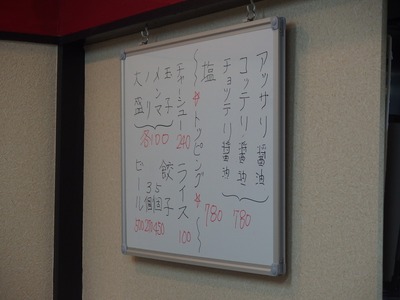 アッサリ醤油
コッテリ醤油
780
チョッテリ醤油
塩
780
～☆トッピング☆～
チャーシュー 240
玉子
メンマ
ノリ
大盛
各100
ライス 100
餃子
5個 450
3個 270
ビール 500